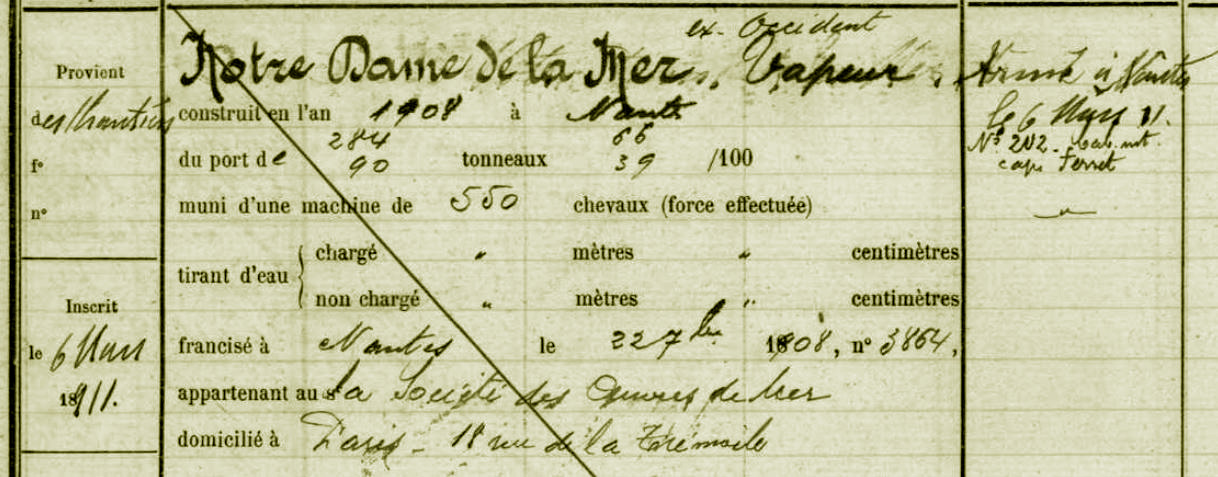 ex-Occident
Notre Dame de la Mer, Vapeur.
Provient
des Chantiers
f°
n°
construit en l'an 1908 à Nantes
284 66
du port de 90 tonneaux 39 /100
muni d'une machine de 550 chevaux (force effectuée)
tirant d'eau
chargé " mètres " centimètres
non chargé " mètres " centimètres
francisé à Nantes le 22 7bre 1908, n° 3864,
appartenant au la Société des Œuvres de Mer
domicilié à Paris - 18 rue de la Trémoile
Inscrit
le 6 Mars
1911.
Armé à Nantes
le 6 Mars 11.
N° 202 - cab. int.
cap. Ferret